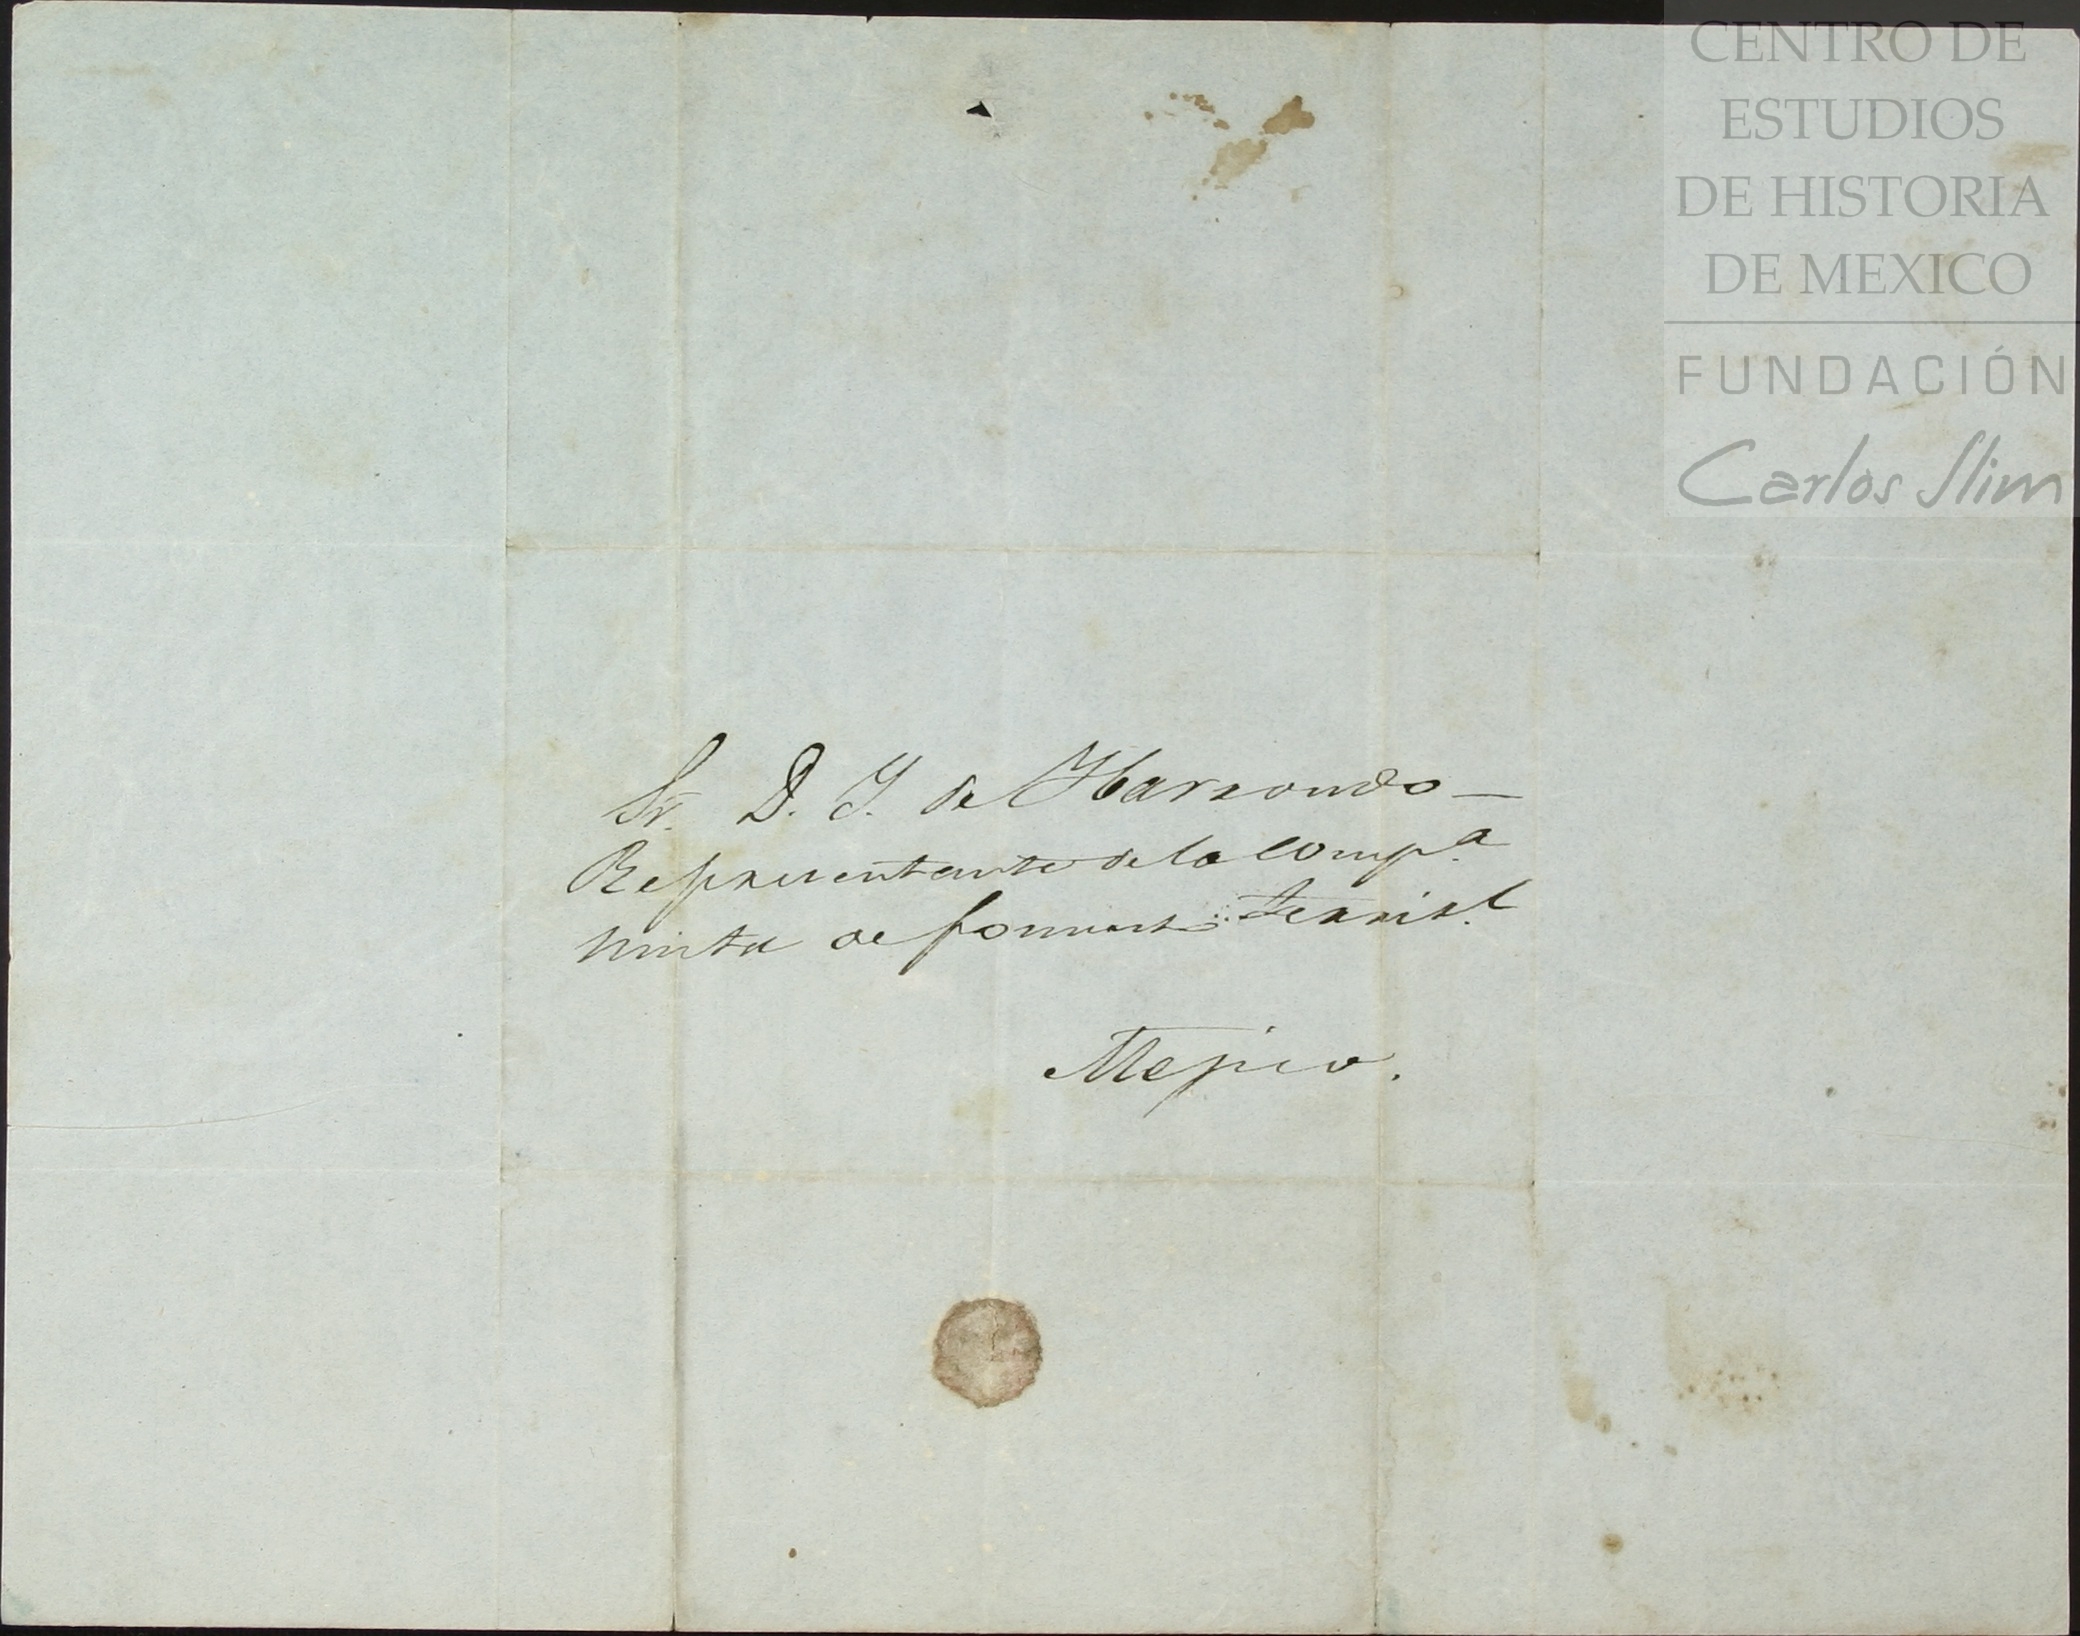 CENTRO DE
ESTUDIOS
DE HISTORIA
DE MEXICO
FUNDACIÓN
Carlos Slim
Sr. D. Y. de Ibarrondo —
Representante de la Comp.a
Mista de fomento territ.l
Mejico.